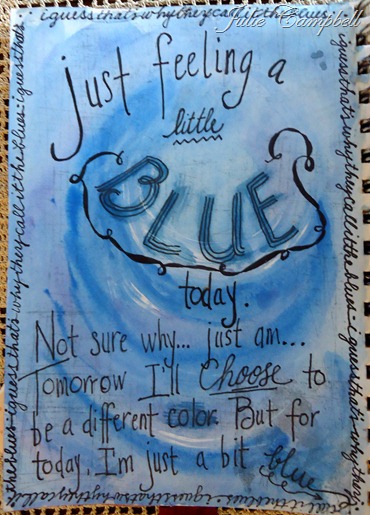 i guess that's why they call it the blues
Julie Campbell
just feeling a
little
BLUE
today.
Not sure why... just am...
Tomorrow I'll Choose to
be a different color. But for
today, I'm just a bit blue
i guess that's why they call it the blues
i guess that's why they call it the blues
the blues · i guess that's why they call it
the blues · i guess that's why they